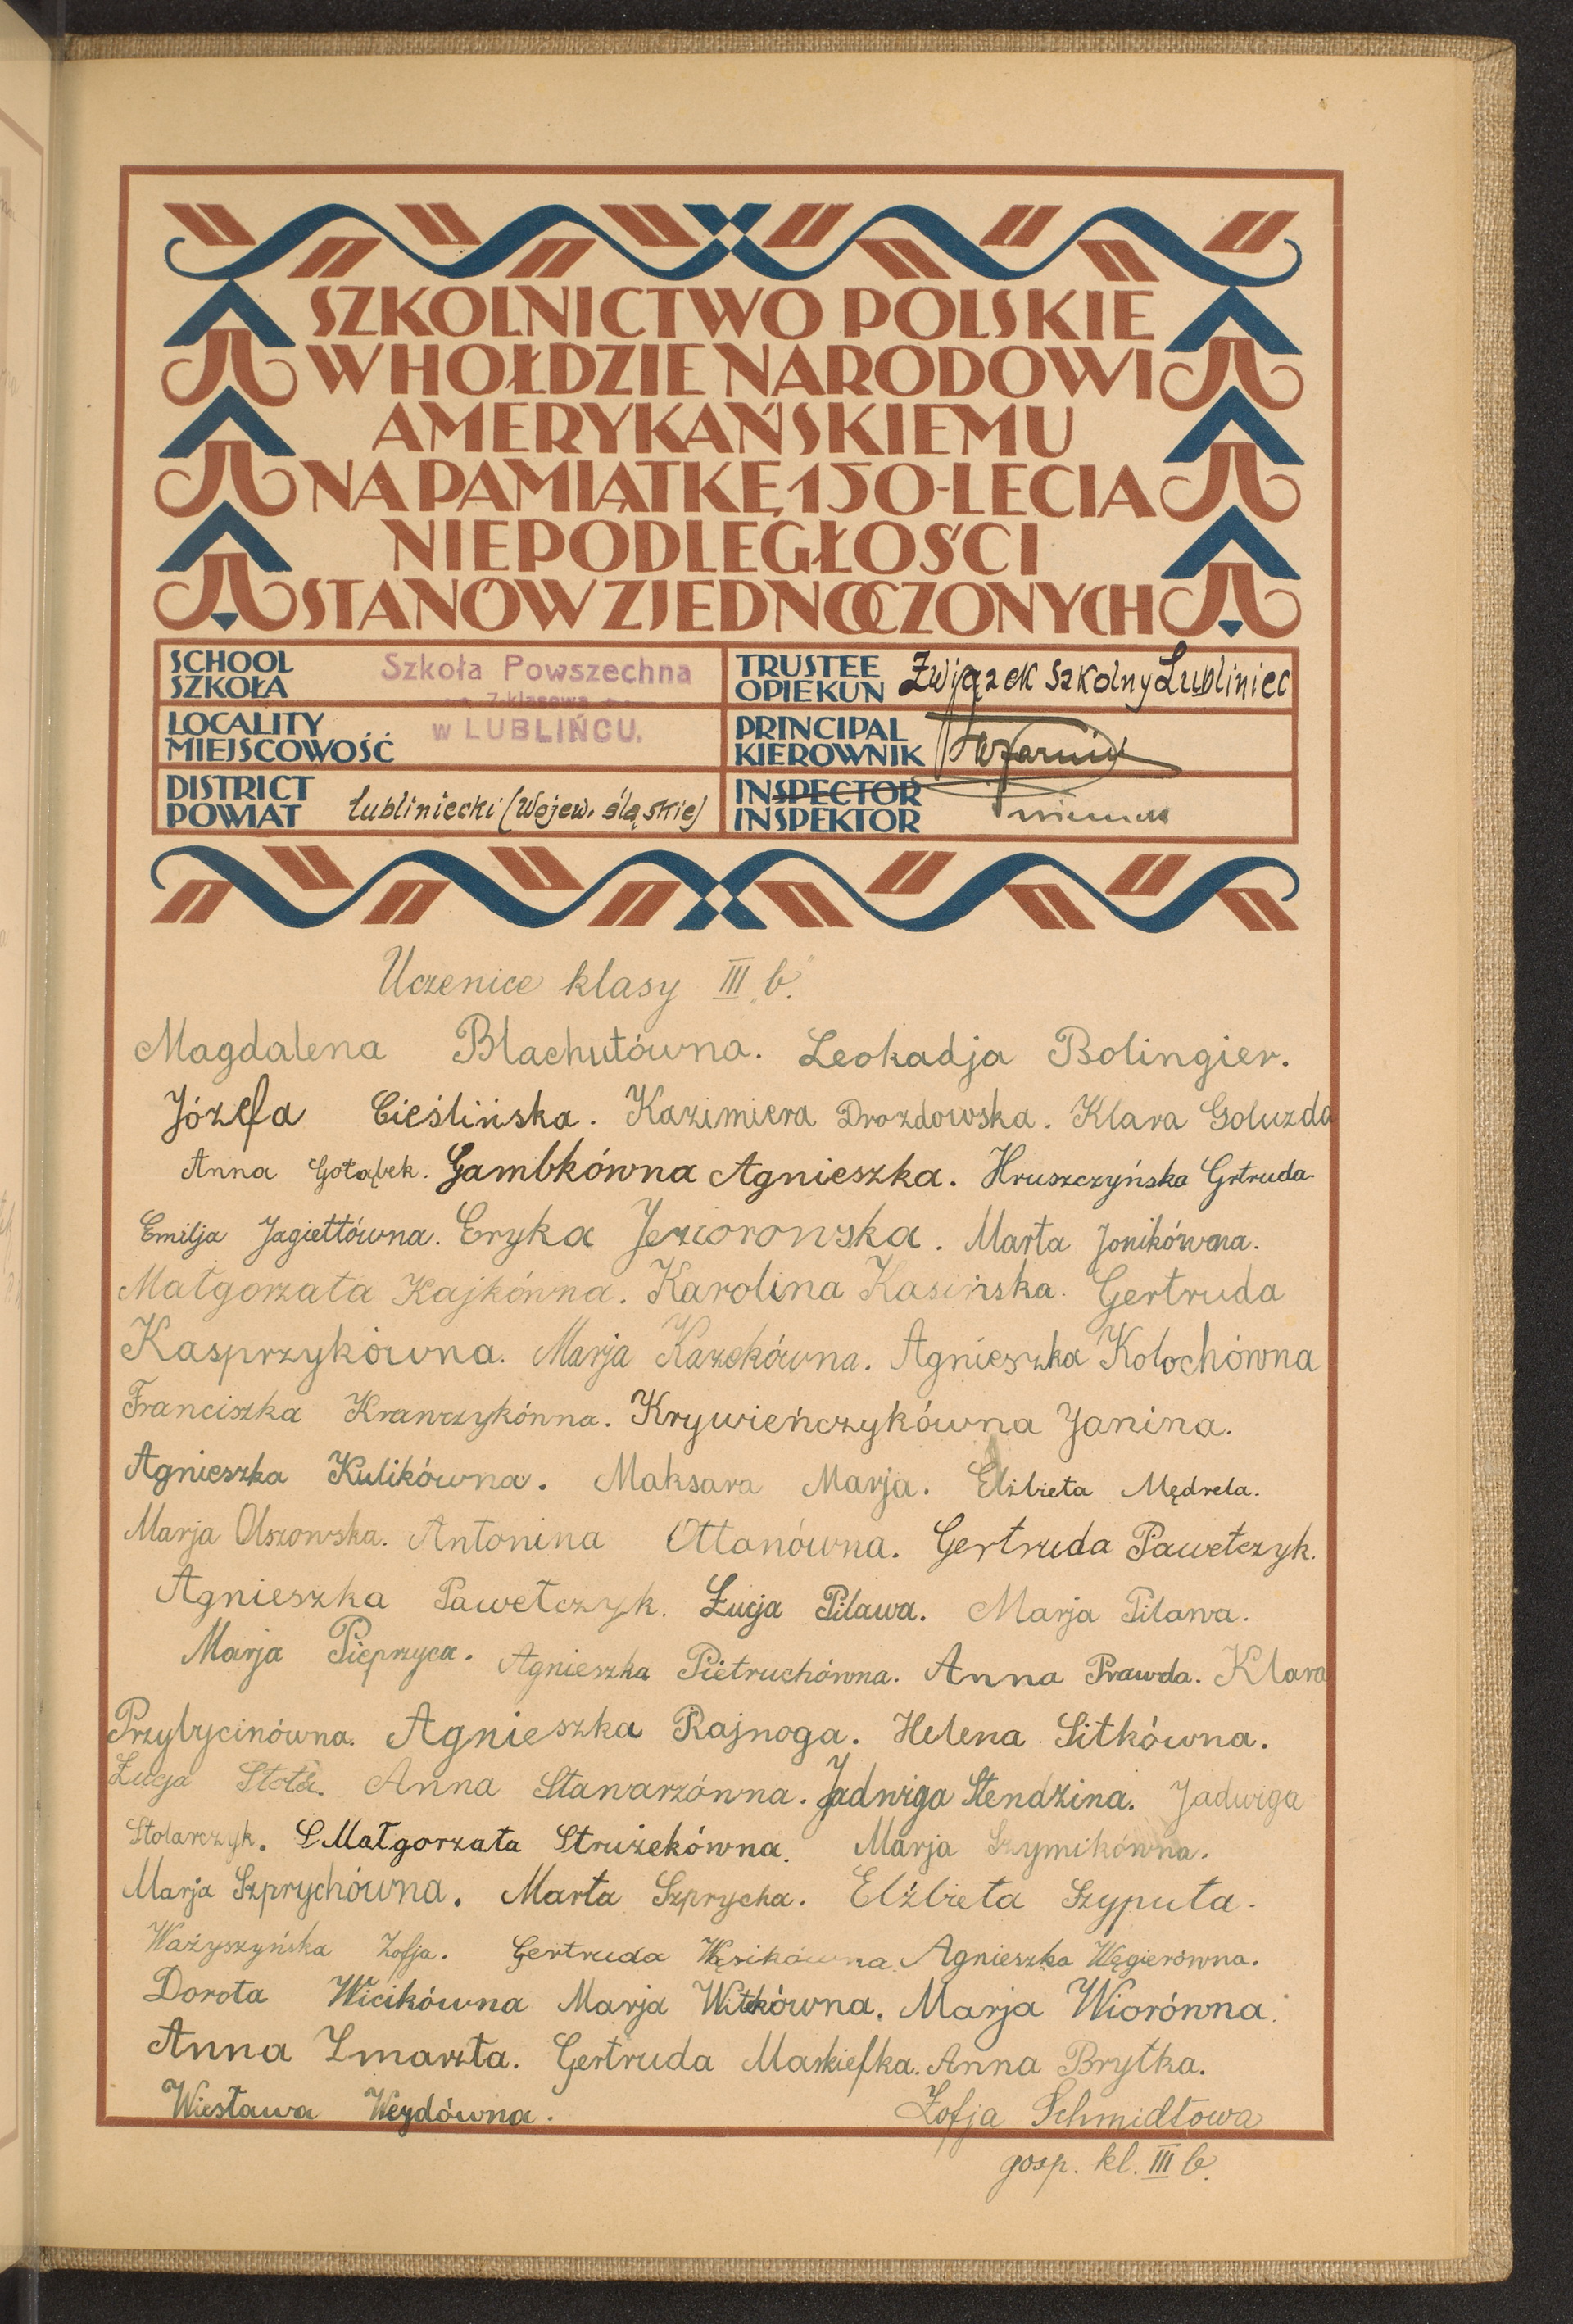 SZKOLNICTWO POLSKIE
W HOŁDZIE NARODOWI
AMERYKAŃSKIEMU
NA PAMIĄTKĘ 150-LECIA
NIEPODLEGŁOŚCI
STANÓW ZJEDNOCZONYCH
SCHOOL
SZKOŁA
Szkoła Powszechna
7-klasowa
TRUSTEE
OPIEKUN
Związek Szkolny Lubliniec
LOCALITY
MIEJSCOWOŚĆ
w LUBLIŃCU.
PRINCIPAL
KIEROWNIK
DISTRICT
POWIAT
Lubliniecki (Wojew. śląskie)
INSPECTOR
INSPEKTOR
Uczenice klasy III „b."
Magdalena Blachutówna. Leokadja Bolingier.
Józefa Cieślińska. Kazimiera Drozdowska. Klara Goluzda
Anna Gołąbek. Gambkówna Agnieszka. Hruszczyńska Grtruda
Emilja Jagiełłówna. Eryka Jeziorowska. Marta Jonikówna.
Małgorzata Kajkówna. Karolina Kasińska. Gertruda
Kasprzykówna. Marja Kazekówna. Agnieszka Kołochówna
Franciszka Krawczykówna. Krywieńczykówna Janina.
Agnieszka Kulikówna. Maksara Marja. Elżbieta Mędrela.
Marja Olszowska. Antonina Ottanówna. Gertruda Pawełczyk.
Agnieszka Pawełczyk. Łucja Pilawa. Marja Pilawa.
Marja Pieprzyca. Agnieszka Pietruchówna. Anna Prawda. Klara
Przybycinówna. Agnieszka Rajnoga. Helena Sitkówna.
Łucja Anna Stawarzówna. Jadwiga Stendzina. Jadwiga
Stolarczyk. S Małgorzata Strużekówna. Marja Szymikówna.
Marja Szprychówna. Marta Szprycha. Elżbieta Szyputa.
Ważyszyńska Zofja. Gertruda Wąsikówna. Agnieszka Węgierówna.
Dorota Wicikówna Marja Witkówna. Marja Wiorówna.
Anna Zmarzła. Gertruda Maskiefka. Anna Brytka.
Wiesława Weydówna.
Zofja Schmidtowa
gosp. kl. III b.